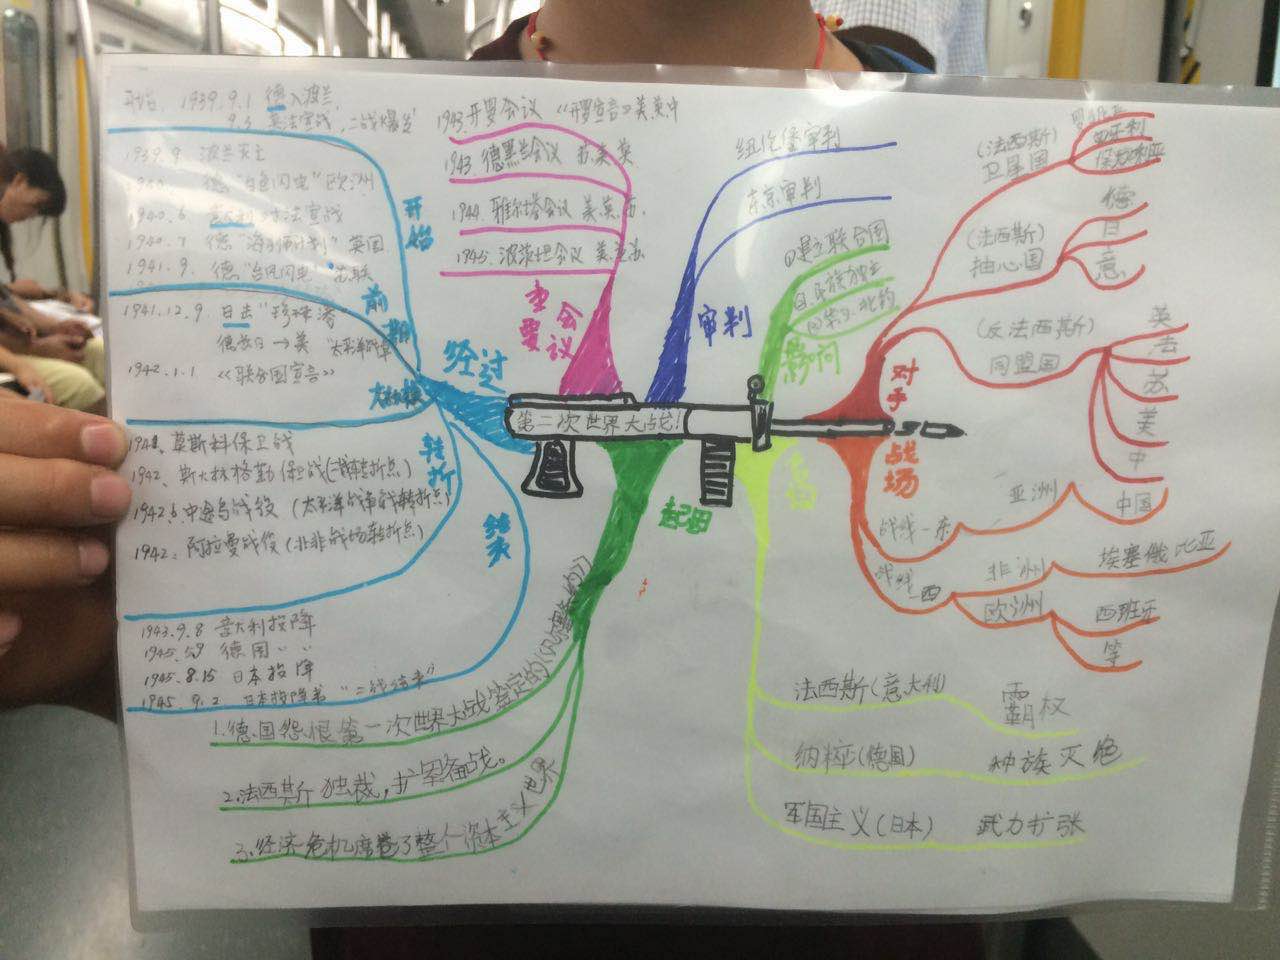 1939.9.1 德入波兰
9.3 英法宣战,二战爆发
1939.9 波兰灭亡
1940. 德"白色闪电"欧洲
1940.6 意大利对法宣战
1940.7 德"海狮计划"英国
1941.9. 德"台风闪电"苏联
1941.12.9. 日击"珍珠港"
德意日→美 太平洋战争
1942.1.1 《联合国宣言》
开始
前期
大规模
经过
转折
结束
莫斯科保卫战
1942. 斯大林格勒保卫战(二战转折点)
1942.6.中途岛战役 (太平洋战争战转折点)
1942. 阿拉曼战役(北非战场转折点)
1943.9.8 意大利投降
1945.5.9 德国 〃 〃
1945.8.15 日本投降
1945.9.2 日本投降书 "二战结束"
1943.开罗会议 《开罗宣言》美英中
1943.德黑兰会议 苏美英
1944.雅尔塔会议 美.英.苏.
1945.波茨坦会议 美.英.苏
重要会议
纽伦堡审判
东京审判
审判
①建立联合国
②民族独立
影响
第二次世界大战!
(法西斯)
卫星国
匈牙利
保加利亚
(法西斯)
抽心国
德
日
意
(反法西斯)
同盟国
英
法
苏
美
中
对手
战场
战线一东
亚洲
中国
战线一西
非洲
埃塞俄比亚
欧洲
西班牙
等
起因
1.德国怨恨第一次世界大战签定的《凡尔赛条约》
2.法西斯独裁,扩军备战。
3.经济危机席卷了整个资本主义世界
法西斯(意大利) 霸权
纳粹(德国) 种族灭绝
军国主义(日本) 武力扩张